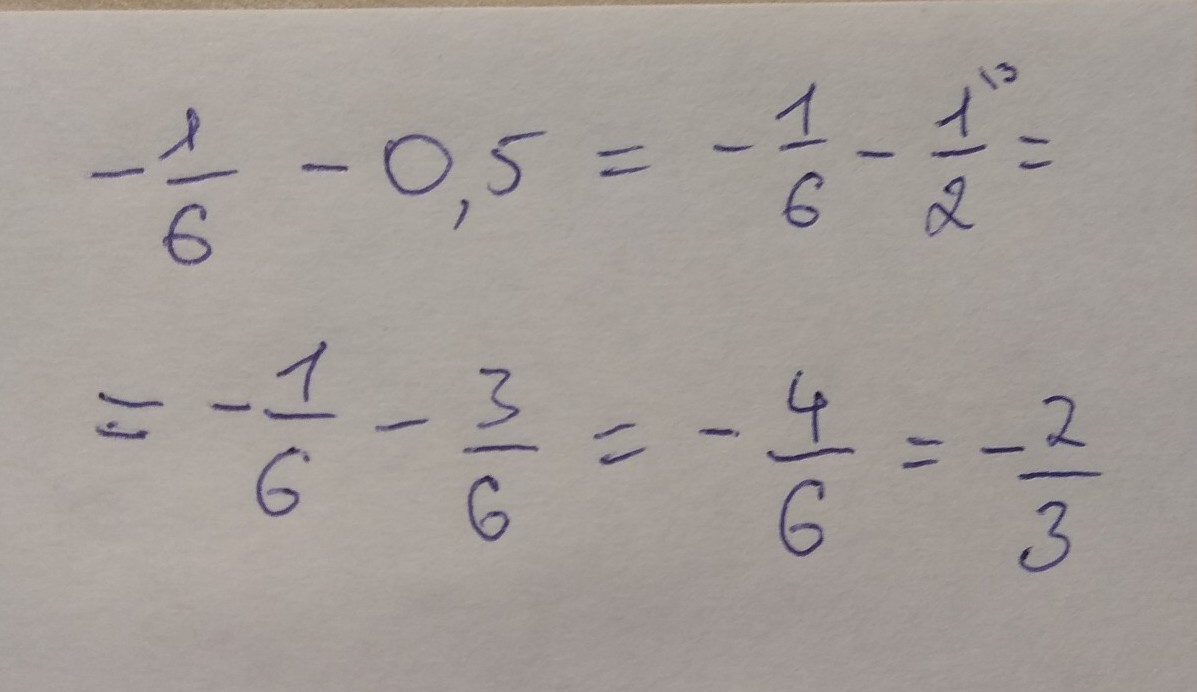 -1/6 - 0,5 = -1/6 - 1/2 \3 =
= -1/6 - 3/6 = -4/6 = -2/3